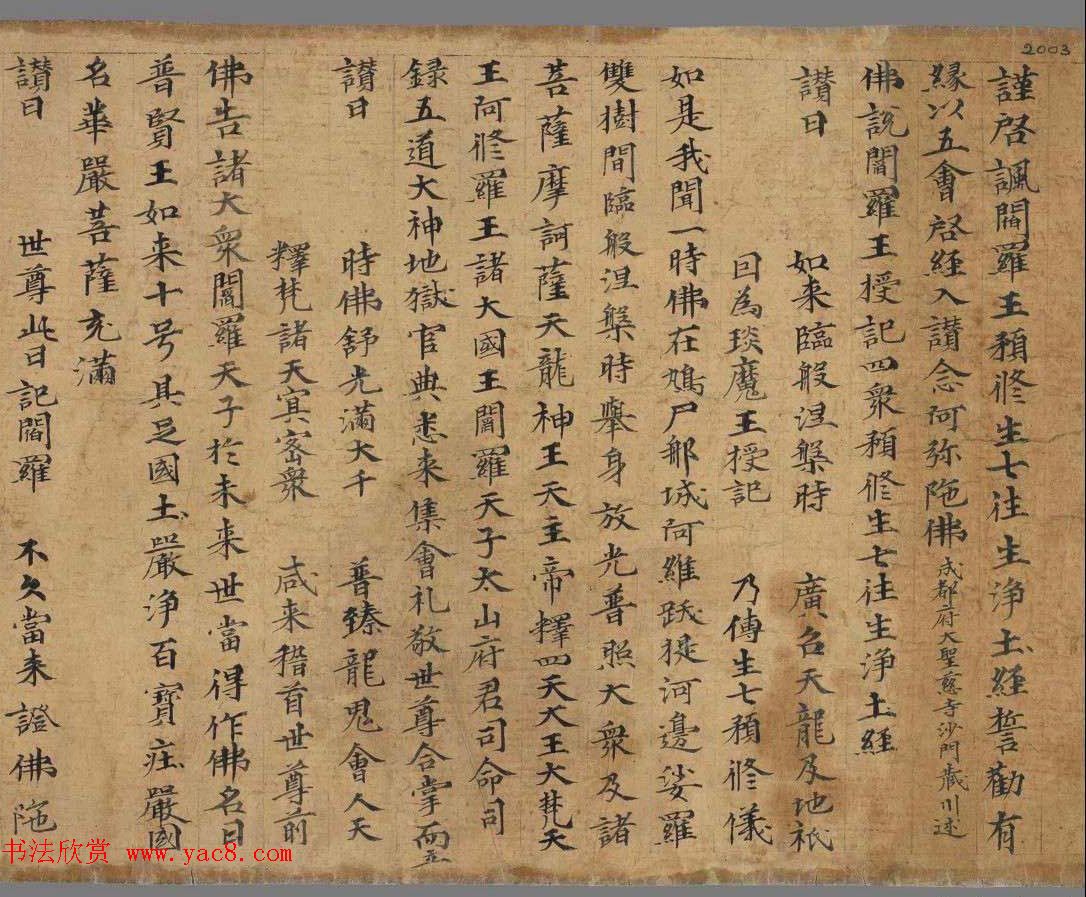 2003
謹啓諷閻羅王預修生七往生浄土經誓勸有
縁以五會啓經入讃念阿弥陁佛 成都府大聖慈寺沙門蔵川述
佛說閻羅王授記四衆預修生七往生浄土經
讃曰 如来臨般涅槃時 廣召天龍及地祇
囙為琰魔王授記 乃傳生七預修儀
如是我聞一時佛在鳩尸郍城阿維跋提河邊娑羅
雙樹間臨般涅槃時舉身放光普照大衆及諸
菩薩摩訶薩天龍神王天主帝釋四天大王大梵天
王阿修羅王諸大國王閻羅天子太山府君司命司
録五道大神地獄官典悉来集會礼敬世尊合掌而立
讃曰 時佛舒光滿大千 普臻龍鬼會人天
釋梵諸天冥密衆 咸来稽首世尊前
佛告諸大衆閻羅天子扵未来世當得作佛名曰
普賢王如来十号具足國土嚴浄百寶莊嚴國
名華嚴菩薩充滿
讃曰 世尊此日記閻羅 不久當来證佛陁
书法欣赏 www.yac8.com